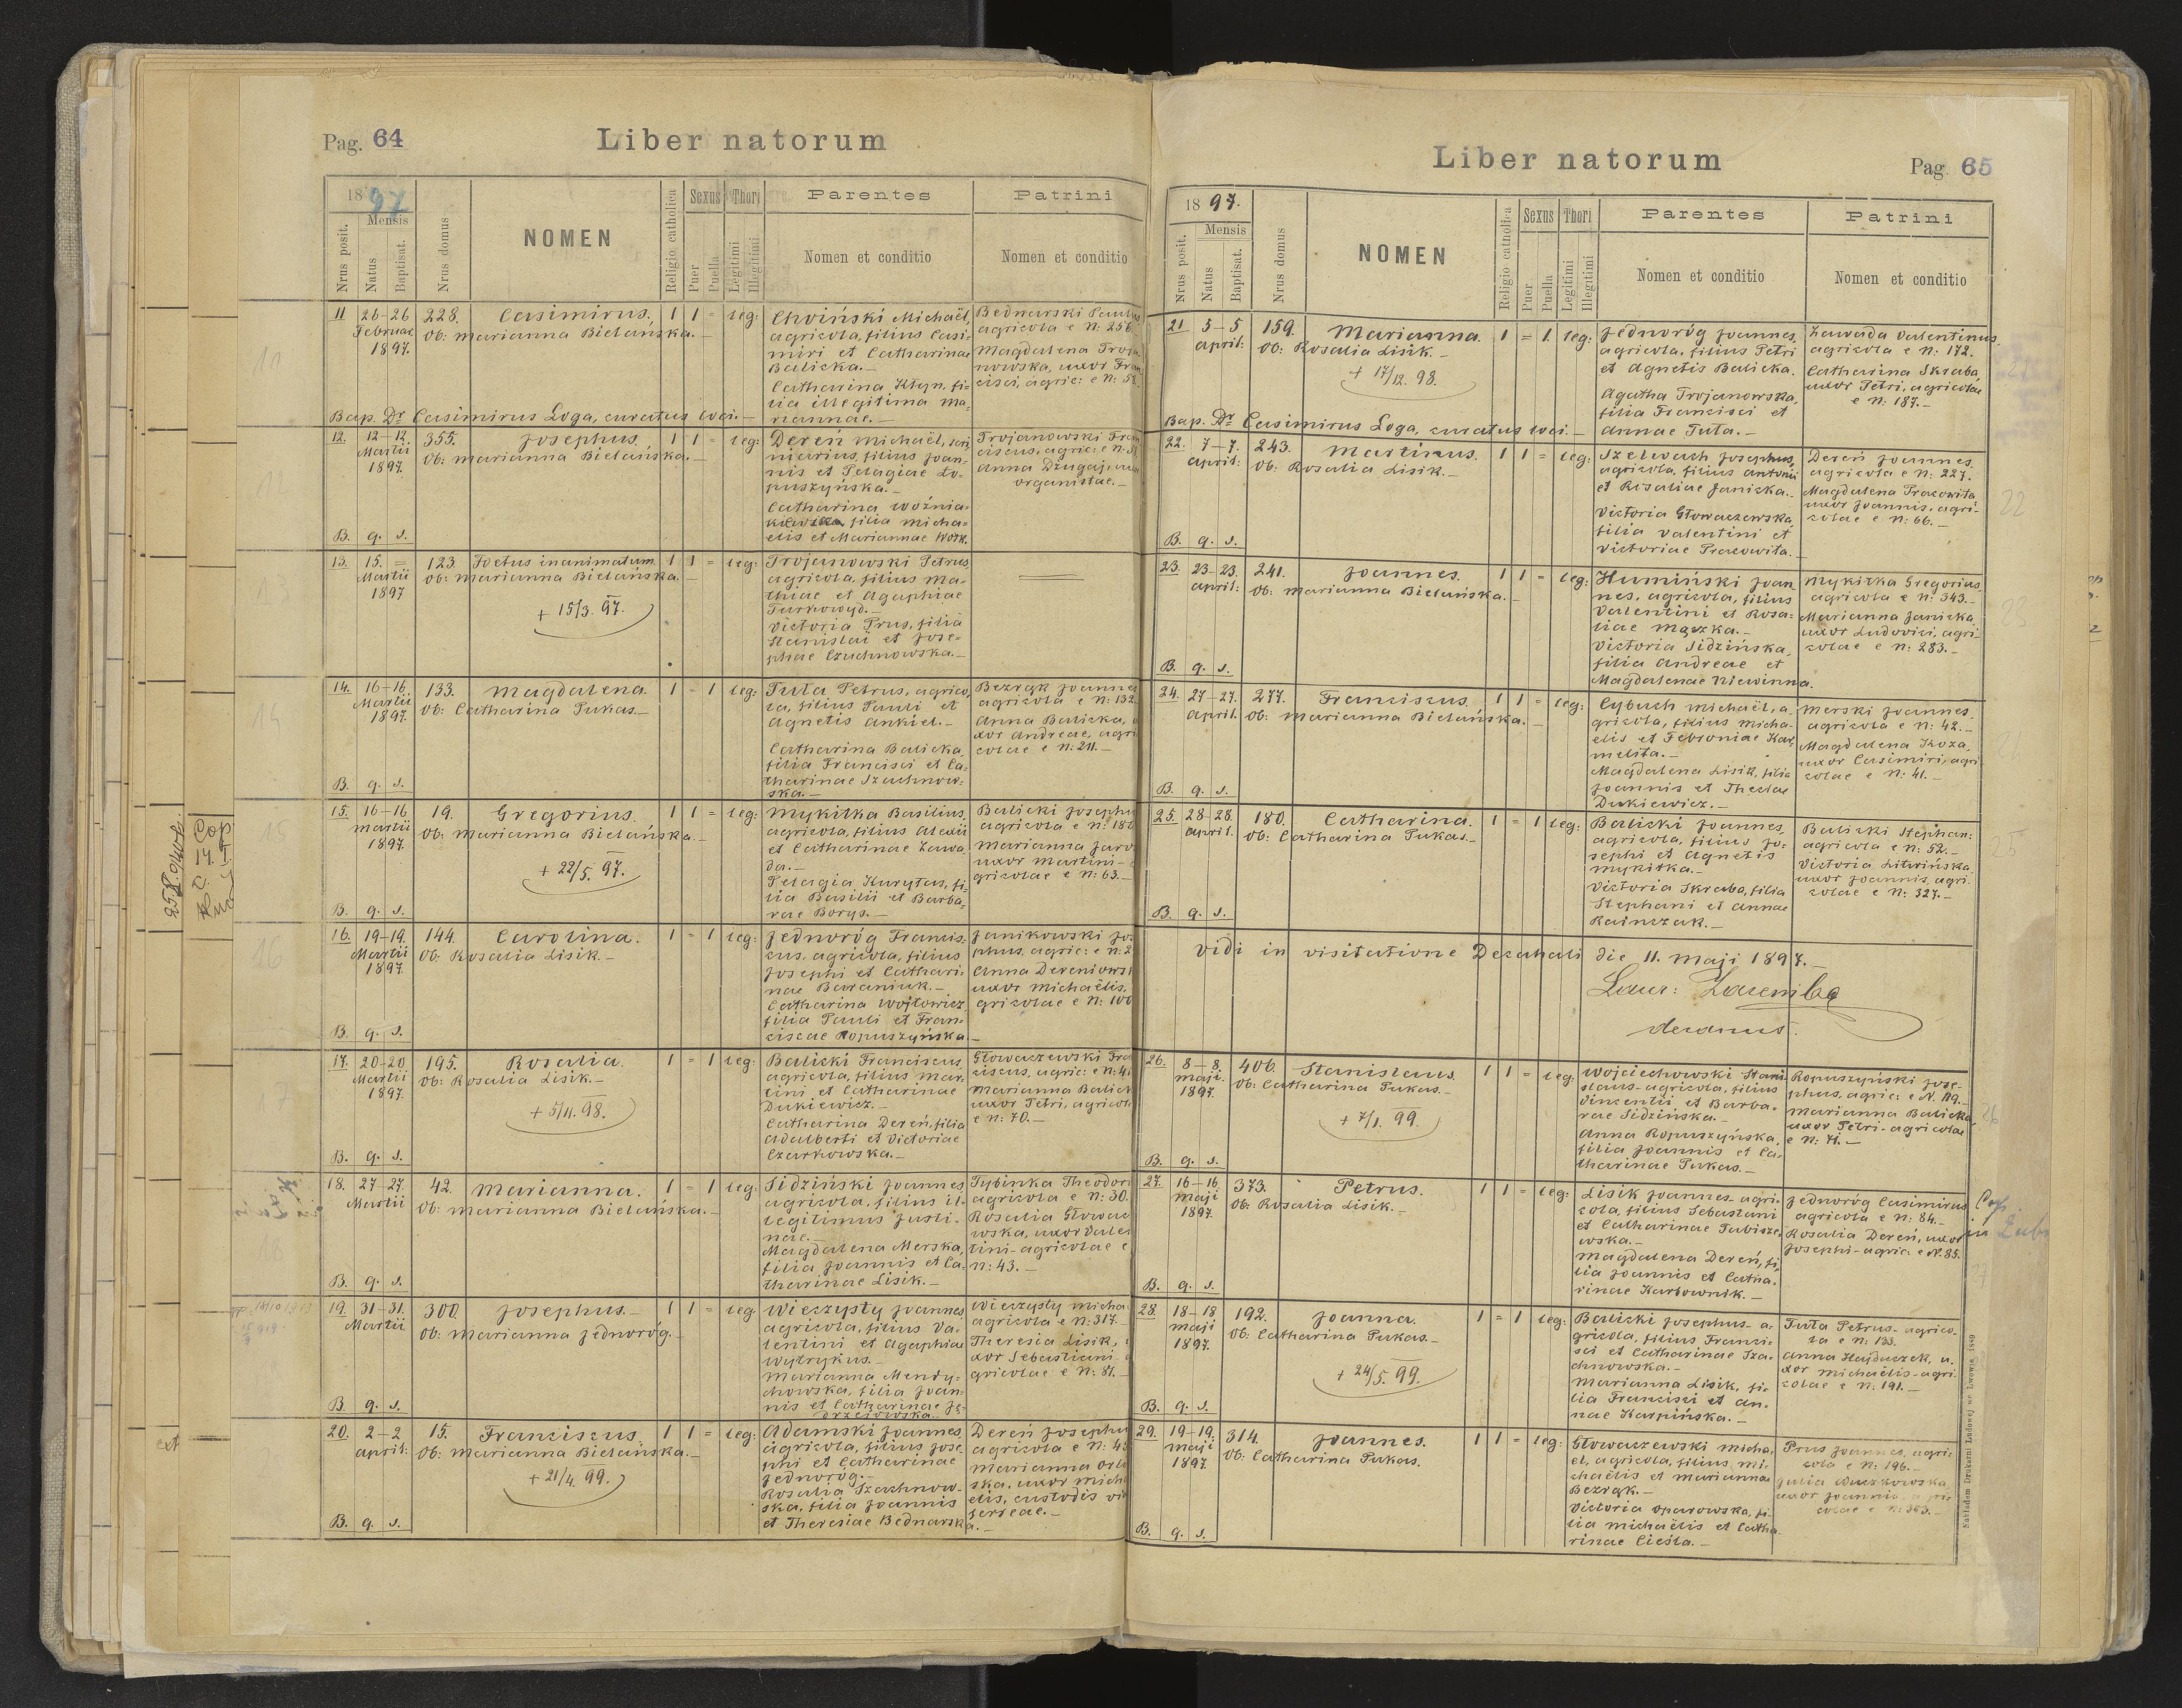 Pag. 64
Liber natorum
1897
Nrus posit.
Mensis
Natus
Baptisat.
Nrus domus
NOMEN
Religio catholica
Sexus
Puer
Puella
Thori
Legitimi
Illegitimi
Parentes
Nomen et conditio
Patrini
Nomen et conditio
11 26-26 228. Casimirus. 1 1 = leg:
Februar. Ob: Marianna Bielańska.
1897.
Choiński Michaël,
agricola, filius Casi-
miri et Catharinae
Balicka.-
Catharina Kłyn, fi-
lia illegitima Ma-
riannae.-
Bednarski Paulus
agricola e N: 256.
Magdalena Troja
nowska, uxor Fran
cisci, agric: e N:
Bap. Dr Casimirus Loga, curatus loci.-
12. 12-12. 355. Josephus. 1 1 = leg:
Martii Ob: Marianna Bielańska.-
1897.
Dereń Michaël,
filius Joan-
nis et Pelagiae Ło-
puszyńska.-
Catharina Woźnia-
filia Micha-
elis et Mariannae Work.
Trojanowski Fran
ciscus, agric: e N:
Anna Dzugaj,
organistae.-
B. q. s.
13. 15. = 123. Foetus inanimatum 1 1 = leg:
Martii Ob: Marianna Bielańska.-
1897
+ 15/3. 97.
Trojanowski Petrus,
agricola, filius Ma-
thiae et Agaphiae
Turkowyd.-
Victoria Prus, filia
Stanislai et Jose-
phae Czuchnowska.-
14. 16-16. 133. Magdalena. 1 = 1 leg:
Martii Ob: Catharina Pukas.-
1897.
Tuta Petrus, agrico-
la, filius Pauli et
Agnetis Ankiel.-
Catharina Balicka,
filia Francisci et Ca-
tharinae Szachnow-
ska.-
Bezrąk Joannes
agricola e N: 132.
Anna Balicka, u
xor Andreae, agri
colae e N: 211.-
B. q. s.
15. 16-16 19. Gregorius. 1 1 = leg:
Martii Ob: Marianna Bielańska.-
1897.
+ 22/5. 97.
Mykitka Basilius,
agricola, filius Alexii
et Catharinae Zawa-
da.-
Pelagia Kurytas, fi-
lia Basilii et Barba-
rae Borys.-
Balicki Josephus
agricola e N:
Marianna
uxor Martini-
gricolae e N: 63.-
B. q. s.
16. 19-19. 144. Carolina. 1 = 1 leg:
Martii Ob: Rosalia Lisik.-
1897.
Jednoróg Francis-
cus, agricola, filius
Josephi et Cathari-
nae Baraniuk.-
Catharina Wojtowicz
filia Pauli et Fran-
ciscae Kopuszyńska.-
Janikowski Jo-
phus, agric: e N:
Anna Dereniows
uxor Michaëlis,
gricolae e N: 100
B. q. s.
17. 20-20 195. Rosalia. 1 = 1 leg:
Martii Ob: Rosalia Lisik.-
1897.
+ 5/11. 98.
Balicki Franciscus
agricola, filius Mar-
tini et Catharinae
Dukiewicz.-
Catharina Dereń, filia
Adalberti et Victoriae
Czarkowska.-
Głowaczewski Fra
ciscus, agric: e N:
Marianna Balick
uxor Petri, agricol
e N: 70.-
B. q. s.
18. 27-27. 42. Marianna. 1 = 1 leg:
Martii Ob: Marianna Bielańska.-
Sidziński Joannes
agricola, filius il-
legitimus Justi-
nae.-
Magdalena Merska,
filia Joannis et Ca-
tharinae Lisik.-
Tybinka Theodor
agricola e N: 30.
Rosalia Głowac
wska, uxor Valen
tini-agricolae e
N: 43.-
B. q. s.
19. 31-31. 300. Josephus.- 1 1 = leg:
Martii Ob: Marianna Jednoróg.-
Wieczysty Joannes,
agricola, filius Va-
lentini et Agaphiae
Wytrykus.-
Marianna Mendy-
chowska, filia Joan-
nis et Catharinae Ję-
drzejowska.
Wieczysty Micha
agricola e N: 317.-
Theresia Lisik,
xor Sebastiani
gricolae e N: 81.-
B. q. s.
20. 2-2 15. Franciscus. 1 1 = leg:
April: Ob: Marianna Bielańska.-
+ 21/4. 99.
Adamski Joannes,
agricola, filius Jose-
phi et Catharinae
Jednoróg.-
Rosalia Szachnow-
ska, filia Joannis
et Theresiae Bednarska.-
Dereń Josephus
agricola e N:
Marianna Orło
ska, uxor Micha
elis, custodis

B. q. s.
Liber natorum
Pag. 65
1897.
Nrus posit.
Mensis
Natus
Baptisat.
Nrus domus
NOMEN
Religio catholica
Sexus
Puer
Puella
Thori
Legitimi
Illegitimi
Parentes
Nomen et conditio
Patrini
Nomen et conditio
21 5-5 159. Marianna. 1 = 1. leg:
April: Ob: Rosalia Lisik.-
+ 17/12. 98.
Jednoróg Joannes,
agricola, filius Petri
et Agnetis Balicka.
Agatha Trojanowska,
filia Francisci et
Annae Tuta.-
Zawada Valentinus,
agricola e N: 172.
Catharina Skraba,
uxor Petri, agricolae
e N: 187.-
Bap. Dr Casimirus Loga, curatus loci.-
22. 7-7. 243. Martinus. 1 1 = leg:
April: Ob: Rosalia Lisik.-
Szelwach Josephus,
agricola, filius Antonii
et Rosaliae Janicka.-
Victoria Głowaczewska,
filia Valentini et
Victoriae Pracowita.-
Dereń Joannes
agricola e N: 227.
Magdalena Pracowita
uxor Joannis, agri-
colae e N: 66.-
B. q. s.
23. 23-23. 241. Joannes. 1 1 = leg:
April: Ob: Marianna Bielańska.-
Humiński Joan-
nes, agricola, filius
Valentini et Rosa-
liae Mączka.-
Victoria Sidzińska,
filia Andreae et
Magdalenae Niewinna.
Mykitka Gregorius,
agricola e N: 343.-
Marianna Janicka,
uxor Ludovici, agri-
colae e N: 283.-
B. q. s.
24. 27-27. 277. Franciscus. 1 1 = leg:
April. Ob: Marianna Bielańska.-
Cybuch Michaël, a-
gricola, filius Micha-
elis et Febroniae Kar-
melita.-
Magdalena Lisik, filia
Joannis et Theclae
Dukiewicz.-
Merski Joannes,
agricola e N: 42.-
Magdalena Koza,
uxor Casimiri, agri
colae e N: 41.-
B. q. s.
25. 28-28. 180. Catharina. 1 = 1 leg:
April. Ob: Catharina Pukas.-
Balicki Joannes,
agricola, filius Jo-
sephi et Agnetis
Mykitka.-
Victoria Skraba, filia
Stephani et Annae
Kainczak.-
Balicki Stephan:
agricola e N: 52.-
Victoria Litwińska,
uxor Joannis, agri-
colae e N: 327.-
B. q. s.
Vidi in visitatione Decanali die 11. Maji 1897.-
Laur: Zaremba
decanus.
26. 8-8. 406. Stanislaus. 1 1 = leg:
Maji. Ob: Catharina Pukas.-
1897.
+ 7/1. 99.
Wojciechowski Stani-
slaus-agricola, filius
Vincentii et Barba-
rae Sidzińska.-
Anna Kopuszyńska,
filia Joannis et Ca-
tharinae Pukas.-
Kopuszyński Jose-
phus, agric: e N. 119.-
Marianna Balicka,
uxor Petri-agricolae
e N: 71.-
B. q. s.
27. 16-16. 373. Petrus. 1 1 = leg:
Maji Ob: Rosalia Lisik.-
1897.
Lisik Joannes-agri-
cola, filius Sebastiani
et Catharinae Tabisze-
wska.-
Magdalena Dereń, fi-
lia Joannis et Catha-
rinae Karbownik.-
Jednoróg Casimirus
agricola e N: 84.-
Rosalia Dereń, uxor
Josephi-agric: e N. 85.
B. q. s.
28. 18-18 192. Joanna. 1 = 1 leg:
Maji Ob: Catharina Pukas.-
1897.
+ 24/5. 99.
Balicki Josephus-a-
gricola, filius Franci-
sci et Catharinae Sza-
chnowska.-
Marianna Lisik, fi-
lia Francisci et An-
nae Karpińska.-
Tuta Petrus-agrico-
la e N: 133.
Anna Hajduczek, u-
xor Michaëlis-agri-
colae e N: 191.-
B. q. s.
29. 19-19. 314. Joannes. 1 1 = leg:
Maji Ob: Catharina Pukas.
1897.
Głowaczewski Micha-
el, agricola, filius Mi-
chaëlis et Marianna
Bezrąk.-
Victoria Oparowska, fi-
lia Michaëlis et Catha-
rinae Cieśla.-
Prus Joannes, agri-
cola e N: 196.-
Julia
uxor Joannis, agri-
colae e N: 303.-
B. q. s.
Nakładem Drukarni Ludowej we Lwowie 1889